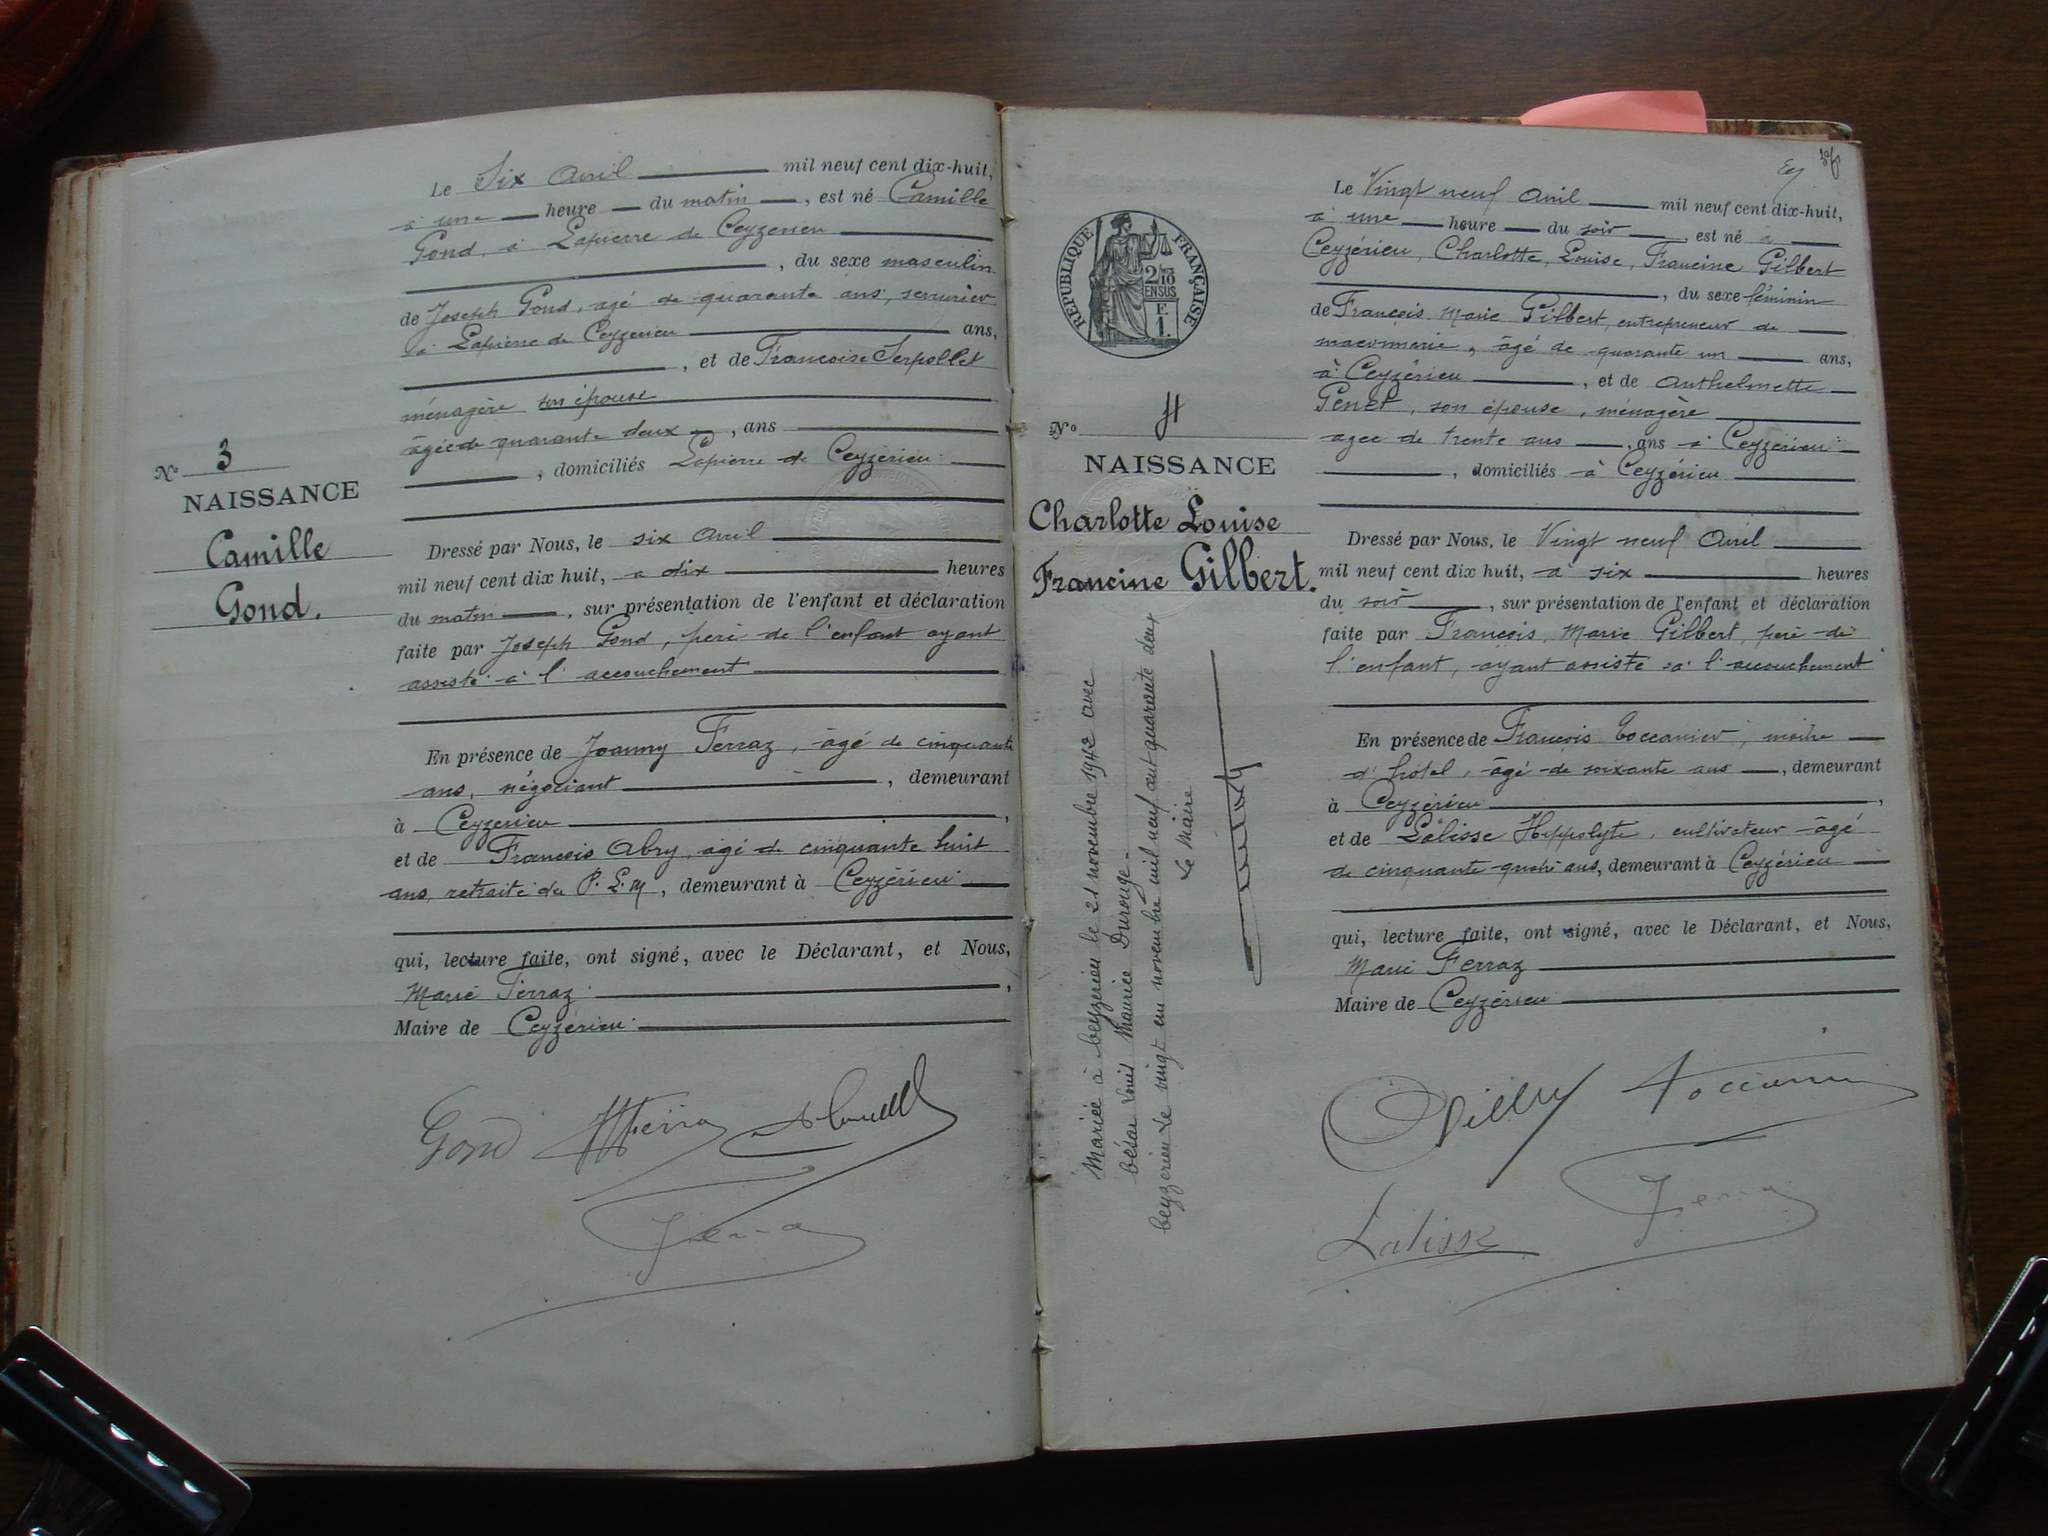 Le Six Avril mil neuf cent dix-huit,
à une heure du matin, est né Camille
Gond, à Lapierre de Ceyzerieu
, du sexe masculin
de Joseph Gond, agé de quarante ans, serrurier
à Lapierre de Ceyzerieu ans,
, et de Francoise Serpollet
ménagère son épouse
âgée de quarante deux, ans
, domiciliés Lapierre de Ceyzérieu
Nº 3
NAISSANCE
Camille
Gond.
Dressé par Nous, le six Avril
mil neuf cent dix huit, à dix heures
du matin, sur présentation de l'enfant et déclaration
faite par Joseph Gond, père de l'enfant ayant
assisté à l'accouchement
En présence de Joanny Ferraz, âgé de cinquante
ans, négociant, demeurant
à Ceyzerieu,
et de François Abry, agé de cinquante huit
ans, retraité du P. L. M, demeurant à Ceyzérieu
qui, lecture faite, ont signé, avec le Déclarant, et Nous,
Marie Ferraz,
Maire de Ceyzérieu
Gond
Ferra
REPUBLIQUE FRANÇAISE
2/10
EN SUS
F.
1.
Nº 4
NAISSANCE
Charlotte Louise
Francine Gilbert.
Mariée à Ceyzerieu le 21 novembre 1942 avec
César Louis Maurice Durouge.
Ceyzerieu le vingt un novembre mil neuf cent quarante deux
Le Maire
Le Vingt neuf Avril mil neuf cent dix-huit,
à une heure du soir, est né à
Ceyzérieu, Charlotte, Louise, Francine Gilbert
, du sexe féminin
de François Marie Gilbert, entrepreneur de
maconnerie, âgé de quarante un ans,
à Ceyzérieu, et de Anthelmette
Genet, son épouse, ménagère
agee de trente ans, ans à Ceyzérieu
, domiciliés à Ceyzérieu
Dressé par Nous, le Vingt neuf Avril
mil neuf cent dix huit, à six heures
du soir, sur présentation de l'enfant et déclaration
faite par François, Marie Gilbert, père de
l'enfant, ayant assisté à l'accouchement
En présence de François Coccanier, maitre
d'hôtel, âgé de soixante ans, demeurant
à Ceyzérieu,
et de Lalisse Hippolyte, cultivateur âgé
de cinquante quatre ans, demeurant à Ceyzérieu
qui, lecture faite, ont signé, avec le Déclarant, et Nous,
Marie Ferraz
Maire de Ceyzérieu
Lalisse